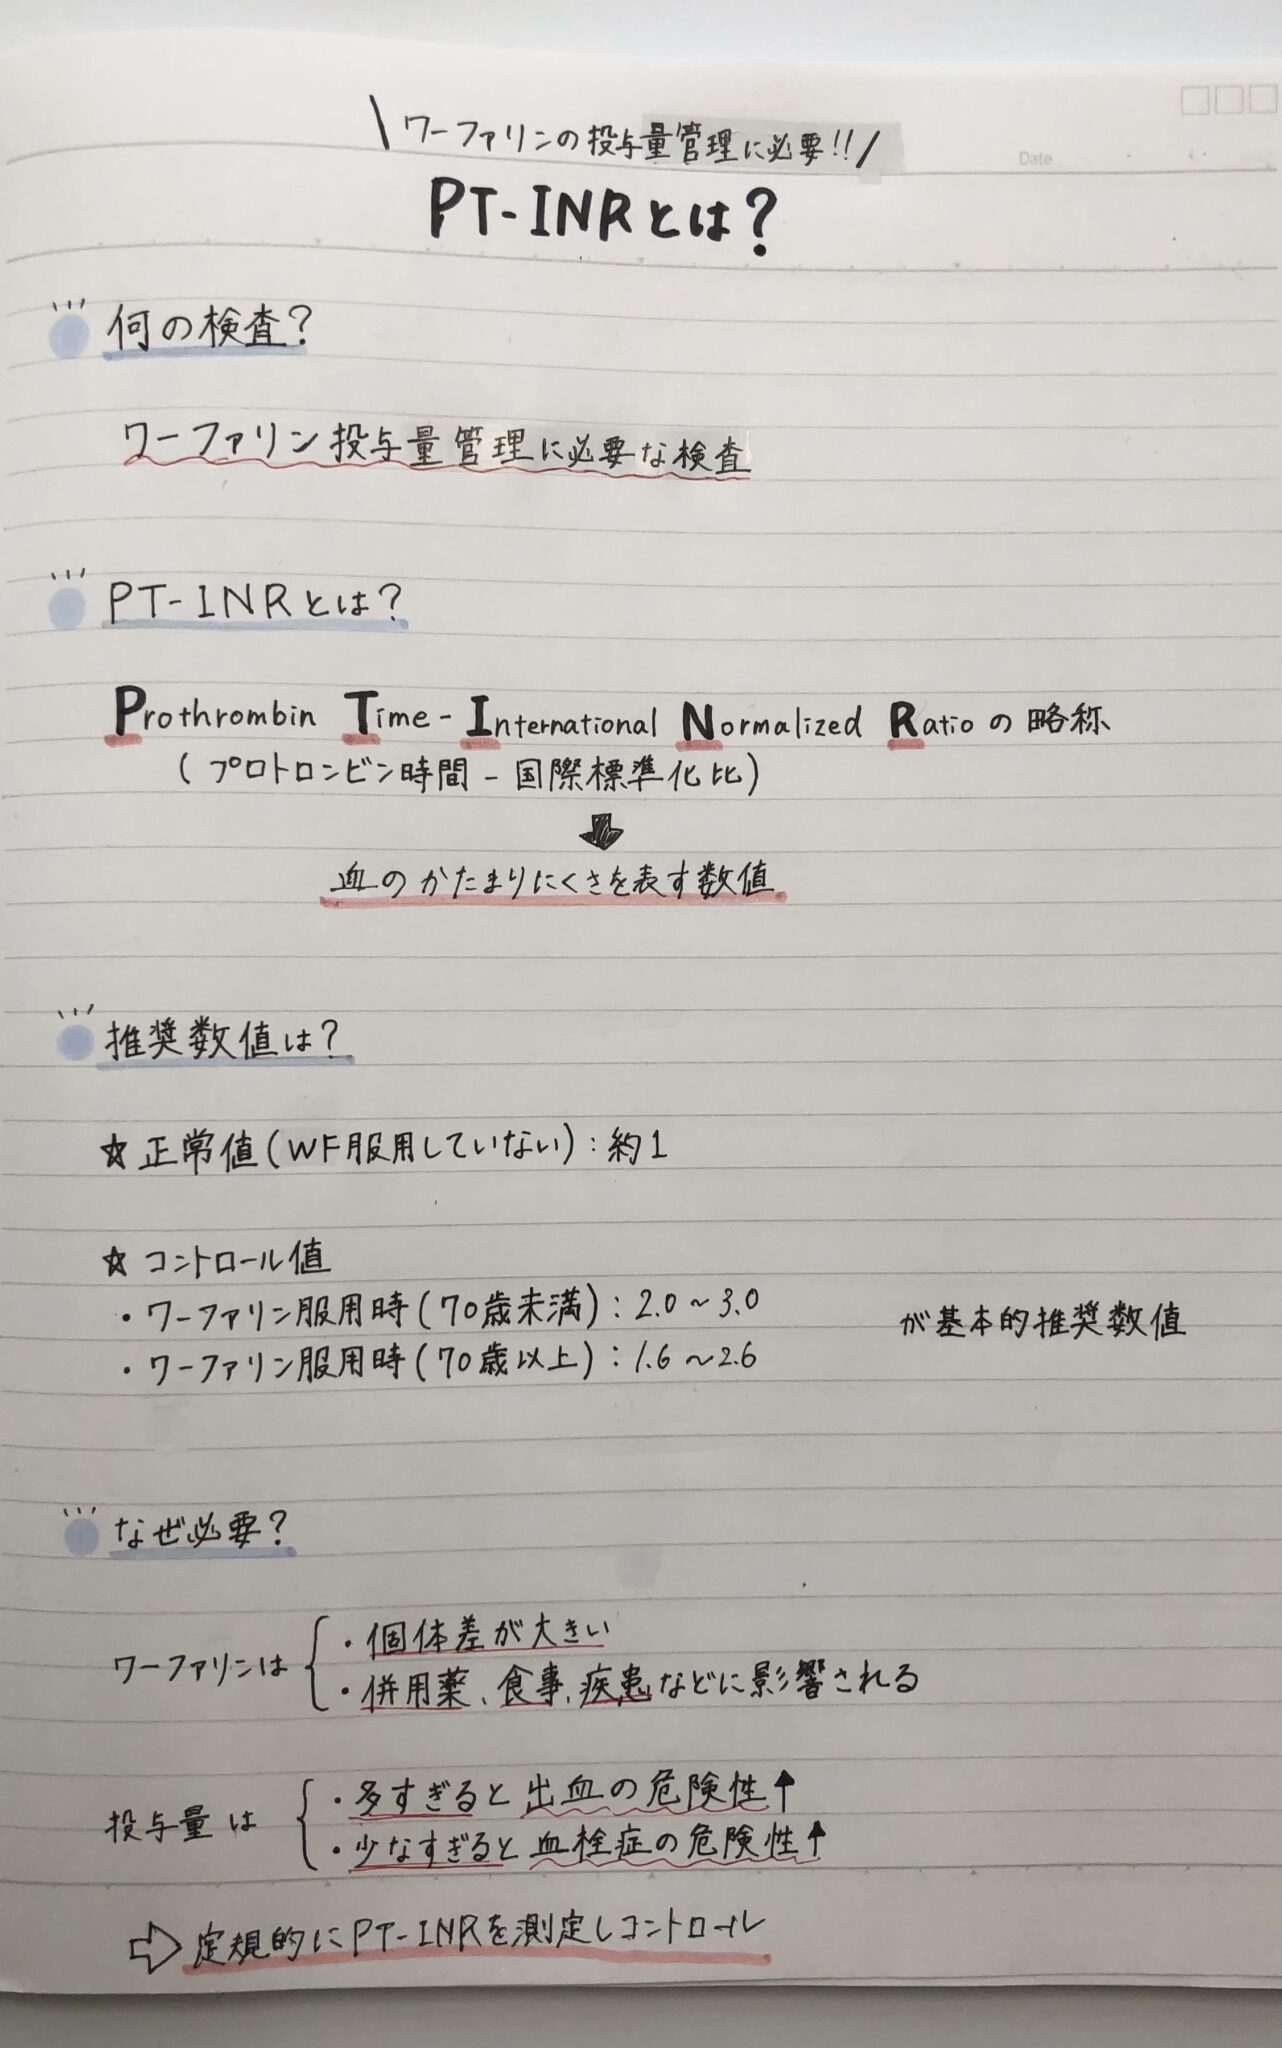 \ ワーファリンの投与量管理に必要!! /
Date
PT-INRとは?
何の検査?
ワーファリン投与量管理に必要な検査
PT-INRとは?
Prothrombin Time-International Normalized Ratioの略称
(プロトロンビン時間-国際標準化比)
血のかたまりにくさを表す数値
推奨数値は?
☆正常値(WF服用していない):約1
☆コントロール値
・ワーファリン服用時(70歳未満):2.0~3.0
が基本的推奨数値
・ワーファリン服用時(70歳以上):1.6~2.6
なぜ必要?
ワーファリンは
・個体差が大きい
・併用薬、食事、疾患などに影響される
投与量は
・多すぎると出血の危険性↑
・少なすぎると血栓症の危険性↑
⇨定規的にPT-INRを測定しコントロール